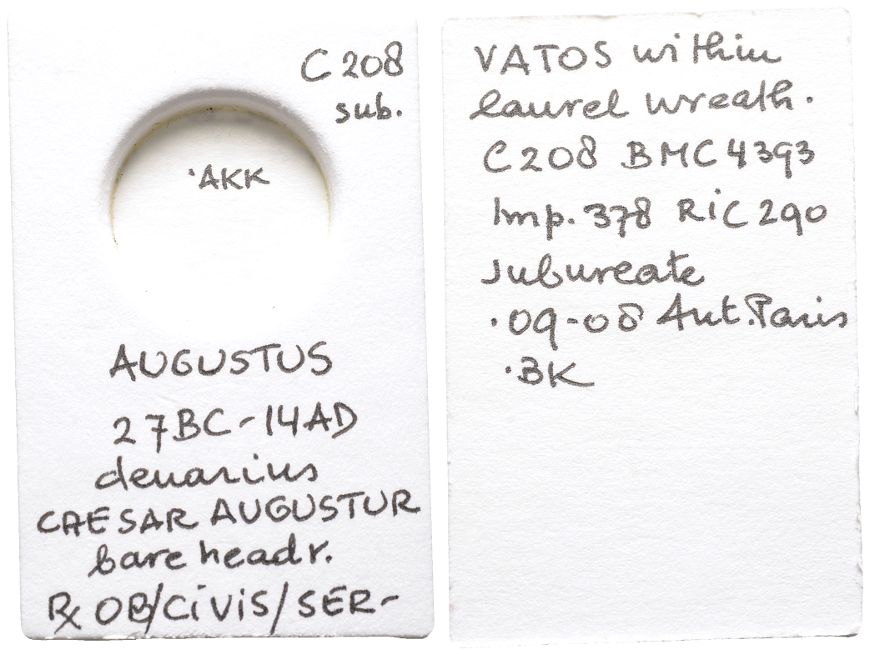 C 208
sub.
·AKK
AUGUSTUS
27BC-14AD
denarius
CAESAR AUGUSTUR
bare head r.
Rx OB/CiViS/SER-
VATOS within
laurel wreath.
C208 BMC4393
Imp. 378 RiC290
subureate
·09-08 Aut.Paris
·BK